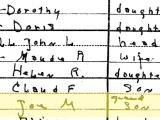 - Dorothy daughte
- Doris daughte
John L. head
- Maude A wife
Helen R. daughte
Claud F Son
Joe M. grand son